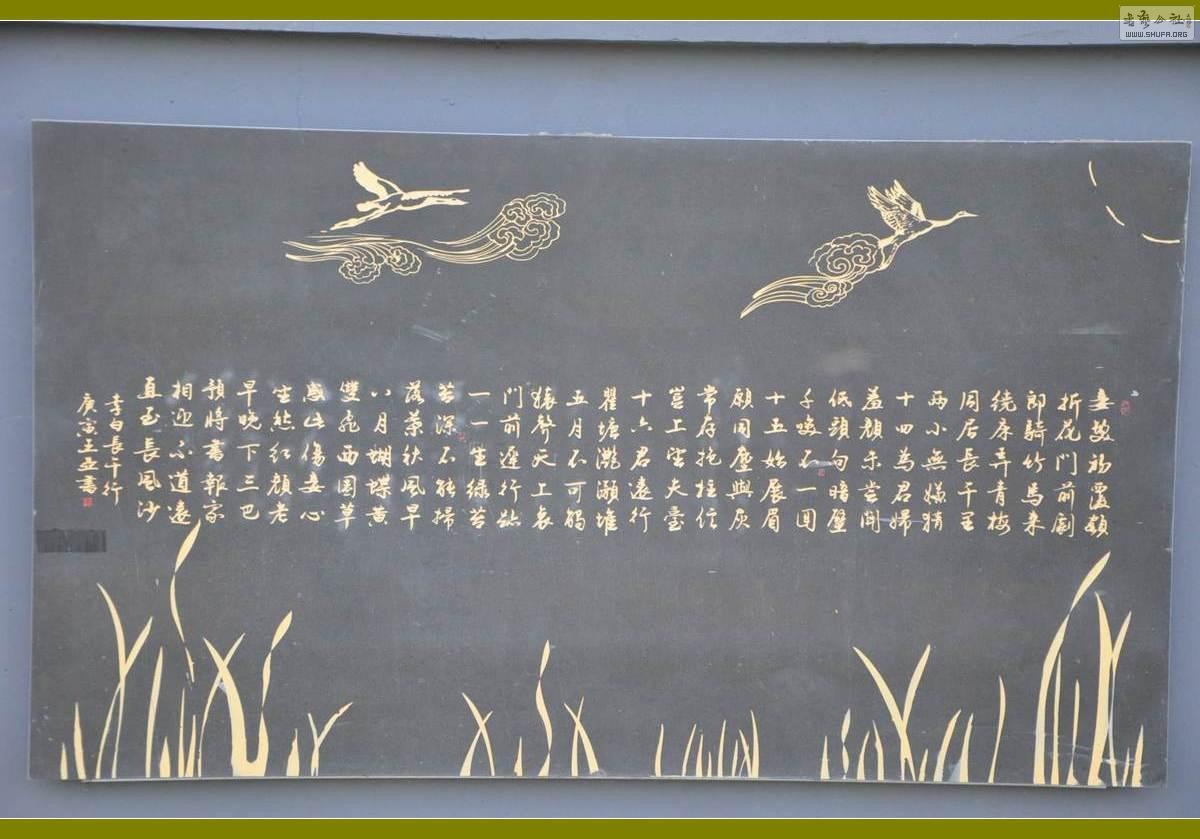 妾髮初覆額
折花門前劇
郎騎竹馬来
繞床弄青梅
同居長干里
兩小無嫌猜
十四為君婦
羞顏未嘗開
低頭向暗壁
千喚不一回
十五始展眉
願同塵與灰
常存抱柱信
豈上望夫臺
十六君遠行
瞿塘灩澦堆
五月不可觸
猿聲天上哀
門前遲行跡
一一生綠苔
苔深不能掃
落葉秋風早
八月蝴蝶黃
雙飛西園草
感此傷妾心
坐愁紅顏老
早晚下三巴
預將書報家
相迎不道遠
直至長風沙
李白長干行
庚寅王書
WWW.SHUFA.ORG